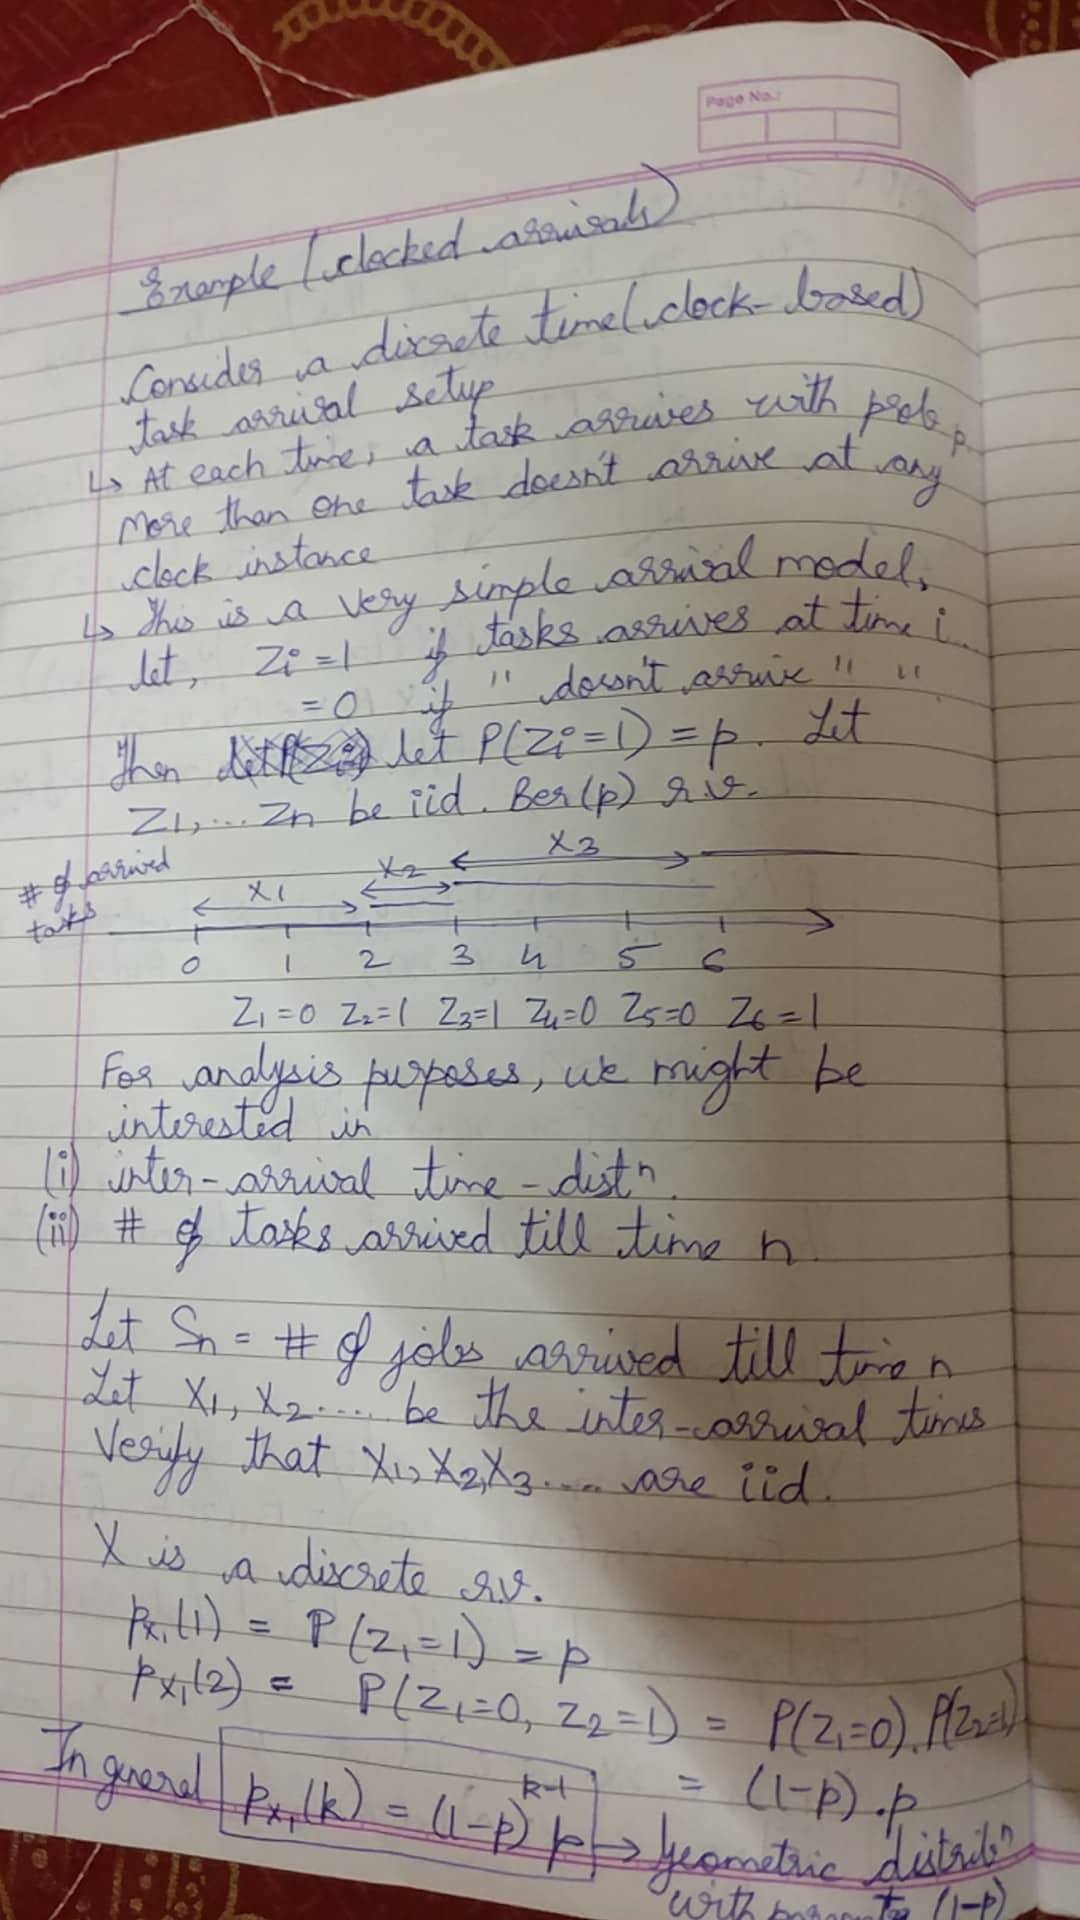 Page No.:
Example (clocked arrivals)
Consider a discrete time (clock-based)
task arrival setup
↳ At each time, a task arrives with prob p.
More than one task doesn't arrive at any
clock instance
↳ This is a very simple arrival model.
let, Zi = 1 if tasks arrives at time i.
= 0 if " doesn't arrive " "
Then let P(Zi=1) = p. Let
Z1,... Zn be iid. Ber(p) r.v.
# of arrived
tasks
X1 X2 X3
0 1 2 3 4 5 6
Z1=0 Z2=1 Z3=1 Z4=0 Z5=0 Z6=1
For analysis purposes, we might be
interested in
(i) inter-arrival time - distn.
(ii) # of tasks arrived till time n
Let Sn = # of jobs arrived till time n
Let X1, X2.... be the inter-arrival times
Verify that X1, X2, X3.... are iid.
X is a discrete r.v.
pX1(1) = P(Z1=1) = p
pX1(2) = P(Z1=0, Z2=1) = P(Z1=0).P(Z2=1)
= (1-p).p
In general pX1(k) = (1-p)^k-1 p → Geometric distribn
with parameter (1-p)